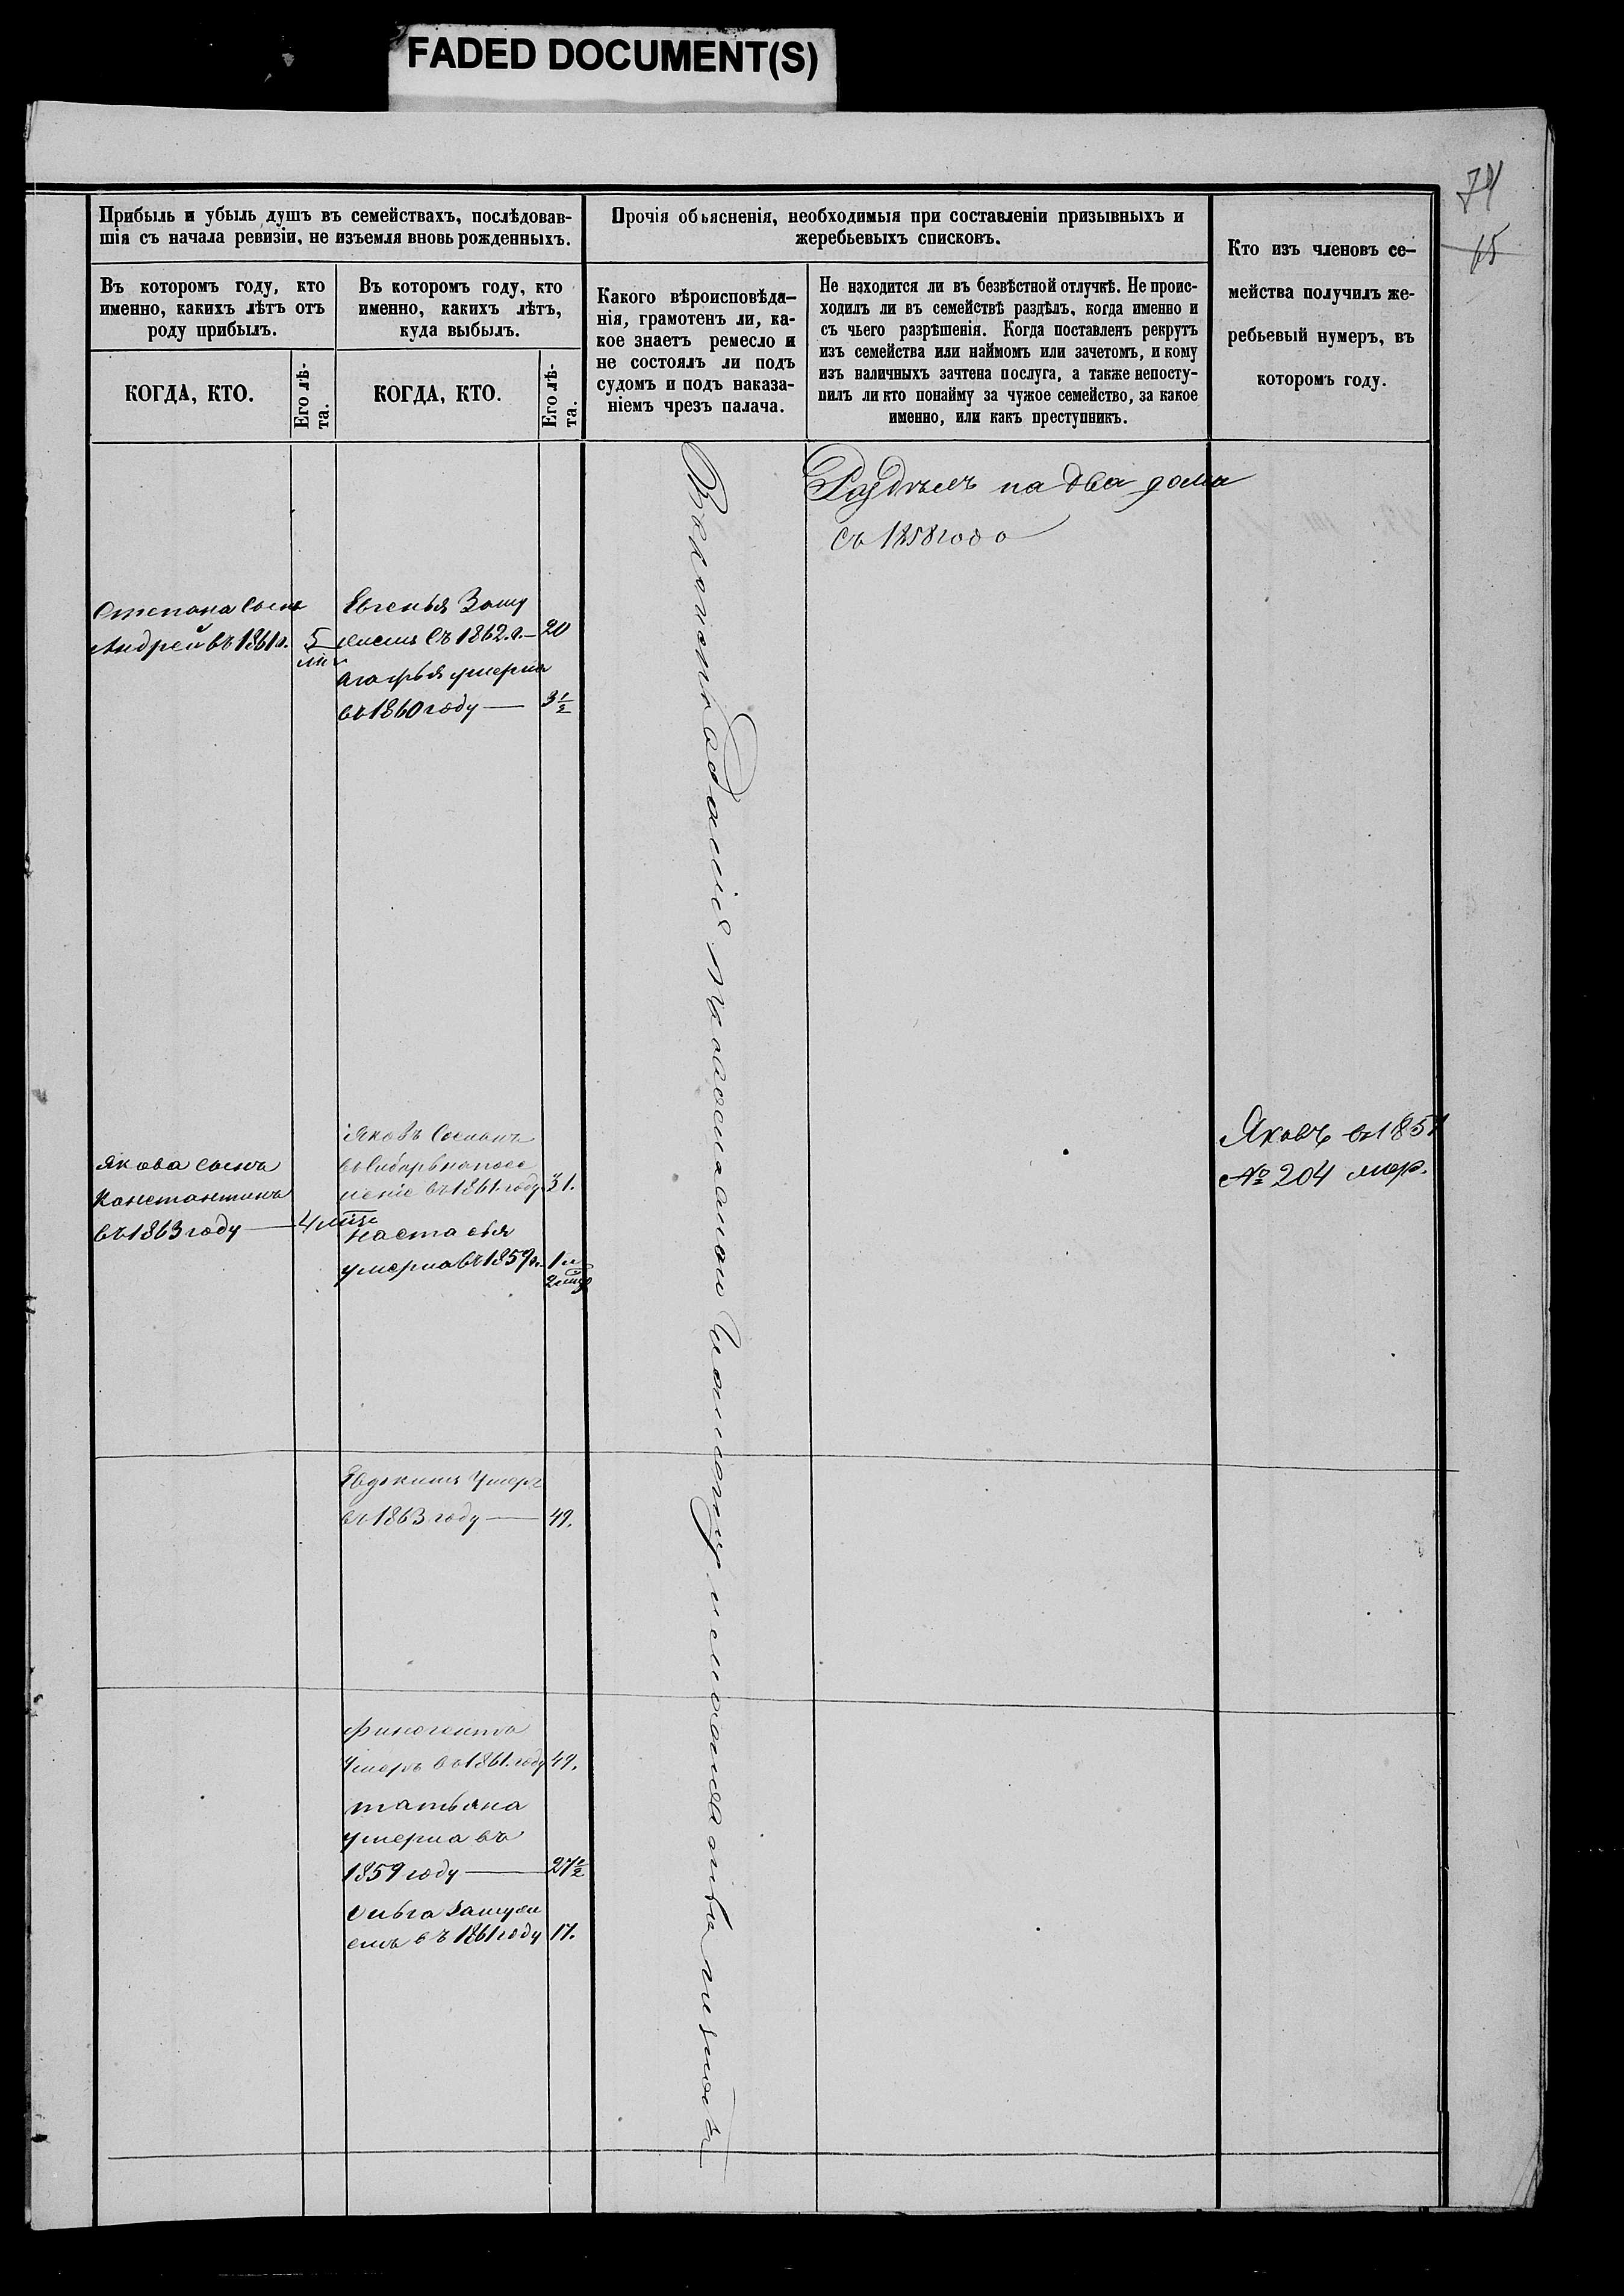 FADED DOCUMENT(S)
74
15
Прибыль и убыль душъ въ семействахъ, послѣдовав-
шія съ начала ревизіи, не изъемля вновь рожденныхъ.
Въ которомъ году, кто
именно, какихъ лѣтъ отъ
роду прибылъ.
КОГДА, КТО.
Его лѣ-
та.
Въ которомъ году, кто
именно, какихъ лѣтъ,
куда выбылъ.
КОГДА, КТО.
Его лѣ-
та.
Прочія объясненія, необходимыя при составленіи призывныхъ и
жеребьевыхъ списковъ.
Какого вѣроисповѣда-
нія, грамотенъ ли, ка-
кое знаетъ ремесло и
не состоялъ ли подъ
судомъ и подъ наказа-
ніемъ чрезъ палача.
Не находится ли въ безвѣстной отлучкѣ. Не проис-
ходилъ ли въ семействѣ раздѣлъ, когда именно и
съ чьего разрѣшенія. Когда поставленъ рекрутъ
изъ семейства или наймомъ или зачетомъ, и кому
изъ наличныхъ зачтена послуга, а также непосту-
пилъ ли кто понайму за чужое семейство, за какое
именно, или какъ преступникъ.
Кто изъ членовъ се-
мейства получилъ же-
ребьевый нумеръ, въ
которомъ году.
Раздѣлъ на два дома
съ 1858 года
Степана сынъ
Андрей въ 1861 г. 5
Евгенья Заму
жемъ съ 1862. г. — 20
Агафья умерла
въ 1860 году — 3 1/2
Якова сынъ
Константинъ
въ 1863 году — 4
Яковъ Сосланъ
въ Сибирь на посе
леніе въ 1861. году 31.
Настасья
умерла въ 1859 г. 1
2
Яковъ въ 1851
№ 204
Евдокимъ Умеръ
въ 1863 году — 49.
Финогентъ
Умеръ въ 1861. году 49.
татьяна
умерла въ
1859 году — 27 1/2
Ольга замуж
емъ съ 1861 году 17.